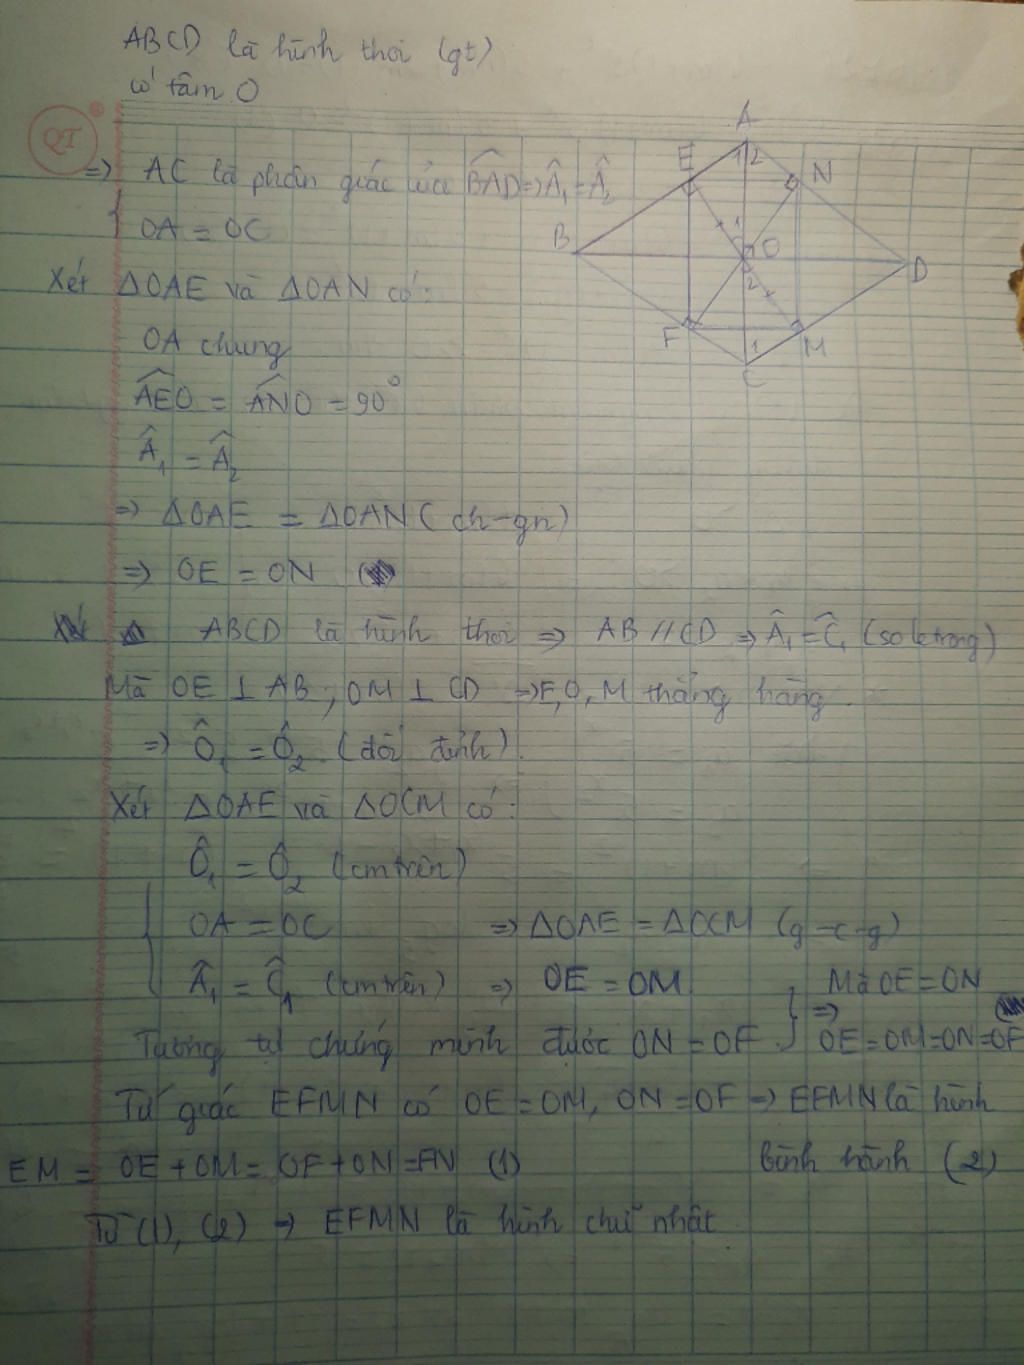 ABCD là hình thoi (gt)
có tâm O
QT
=> AC là phân giác của BAD => Â₁ = Â₂
OA = OC
Xét ΔOAE và ΔOAN có:
OA chung
AEO = ANO = 90°
Â₁ = Â₂
=> ΔOAE = ΔOAN (ch-gn)
=> OE = ON
ABCD là hình thoi => AB // CD => Â₁ = Ĉ₁ (so le trong)
Mà OE ⊥ AB, OM ⊥ CD => E, O, M thẳng hàng.
=> Ô₁ = Ô₂ (đối đỉnh).
Xét ΔOAE và ΔOCM có:
Ô₁ = Ô₂ (cm trên)
OA = OC => ΔOAE = ΔOCM (g-c-g)
Â₁ = Ĉ₁ (cm trên) => OE = OM Mà OE = ON
Tương tự chứng minh được ON = OF. } => OE = OM = ON = OF
Tứ giác EFMN có OE = OM, ON = OF => EFMN là hình
EM = OE + OM = OF + ON = FN (1) bình hành (2)
Từ (1), (2) => EFMN là hình chữ nhật
A
E
1 2
N
B
1
O
D
2
F
1
M
C